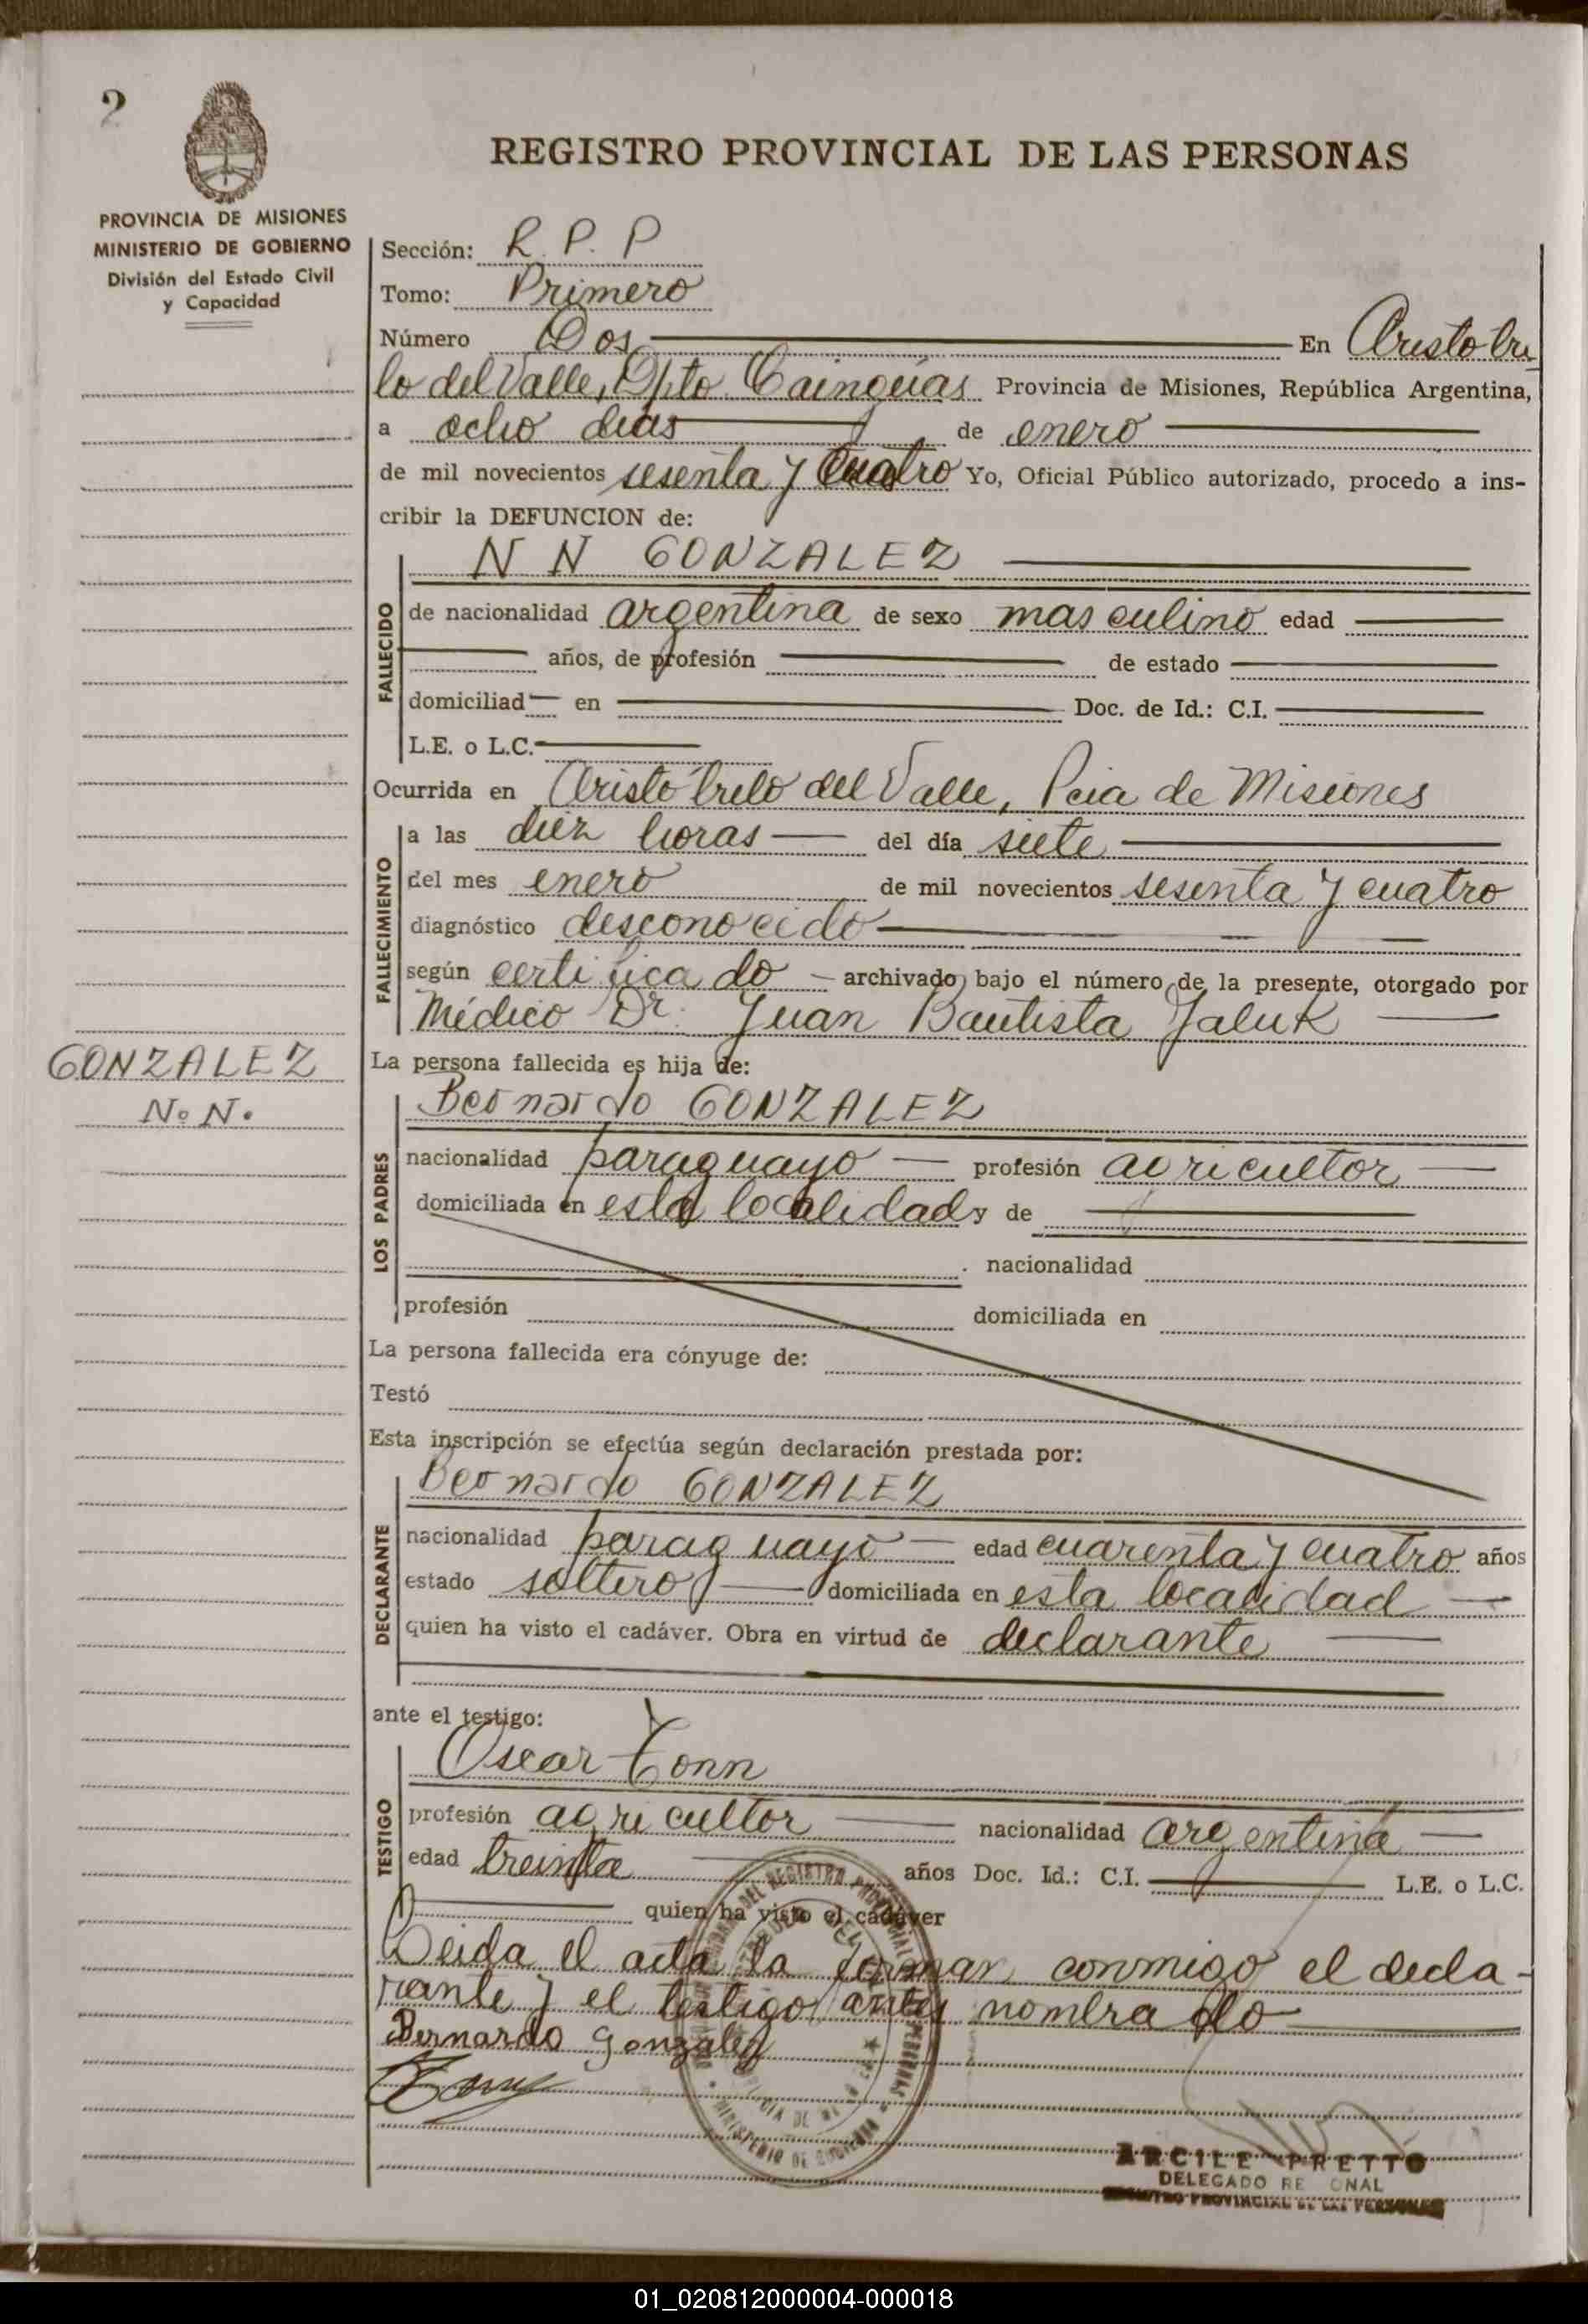 2
REGISTRO PROVINCIAL DE LAS PERSONAS
PROVINCIA DE MISIONES
MINISTERIO DE GOBIERNO
División del Estado Civil
y Capacidad
Sección: R. P. P
Tomo: Primero
Número Dos En Aristobu
lo del Valle, Dpto. Cainguás Provincia de Misiones, República Argentina,
a ocho dias de enero
de mil novecientos sesenta y cuatro Yo, Oficial Público autorizado, procedo a ins-
cribir la DEFUNCION de:
N N GONZALEZ
FALLECIDO
de nacionalidad argentina de sexo masculino edad
años, de profesión de estado
domiciliad en Doc. de Id.: C.I.
L.E. o L.C.
Ocurrida en Aristóbulo del Valle, Pcia de Misiones
FALLECIMIENTO
a las diez horas del día siete
del mes enero de mil novecientos sesenta y cuatro
diagnóstico desconocido
según certificado archivado bajo el número de la presente, otorgado por
Médico Dr. Juan Bautista Jaluk
GONZALEZ
N. N.
La persona fallecida es hija de:
Bernardo GONZALEZ
LOS PADRES
nacionalidad paraguayo profesión agricultor
domiciliada en esta localidad y de
nacionalidad
profesión domiciliada en
La persona fallecida era cónyuge de:
Testó
Esta inscripción se efectúa según declaración prestada por:
Bernardo GONZALEZ
DECLARANTE
nacionalidad paraguayo edad cuarenta y cuatro años
estado soltero domiciliada en esta localidad
quien ha visto el cadáver. Obra en virtud de declarante
ante el testigo:
Oscar Tonn
TESTIGO
profesión agricultor nacionalidad argentina
edad treinta años Doc. Id.: C.I. L.E. o L.C.
quien ha visto el cadáver
Leida el acta la firman conmigo el decla-
rante y el testigo antes nombrado
Bernardo Gonzalez
ARCILE PRETTO
DELEGADO RE ONAL
REGISTRO PROVINCIAL DE LAS PERSONAS
01_020812000004-000018